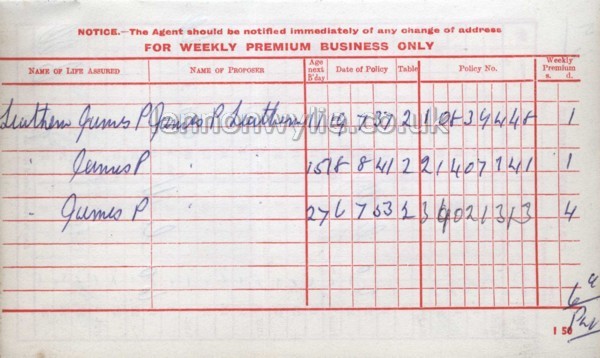 NOTICE.—The Agent should be notified immediately of any change of address
FOR WEEKLY PREMIUM BUSINESS ONLY
NAME OF LIFE ASSURED NAME OF PROPOSER Age next B'day Date of Policy Table Policy No. Weekly Premium s. d.
Leathem James P James P Leathem 19 7 37 2 10839448 1
" James P " 15 18 8 41 2 21407141 1
" James P 27 6 7 53 2 1
cannonwylie.co.uk
6d
1 50